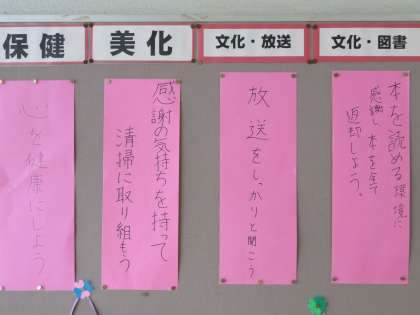 保健
美化
文化・放送
文化・図書
心を健康にしよう。
感謝の気持ちを持って
清掃に取り組もう
放送をしっかりと聞こう
本を読める環境に
感謝し本を全て
返却しよう。